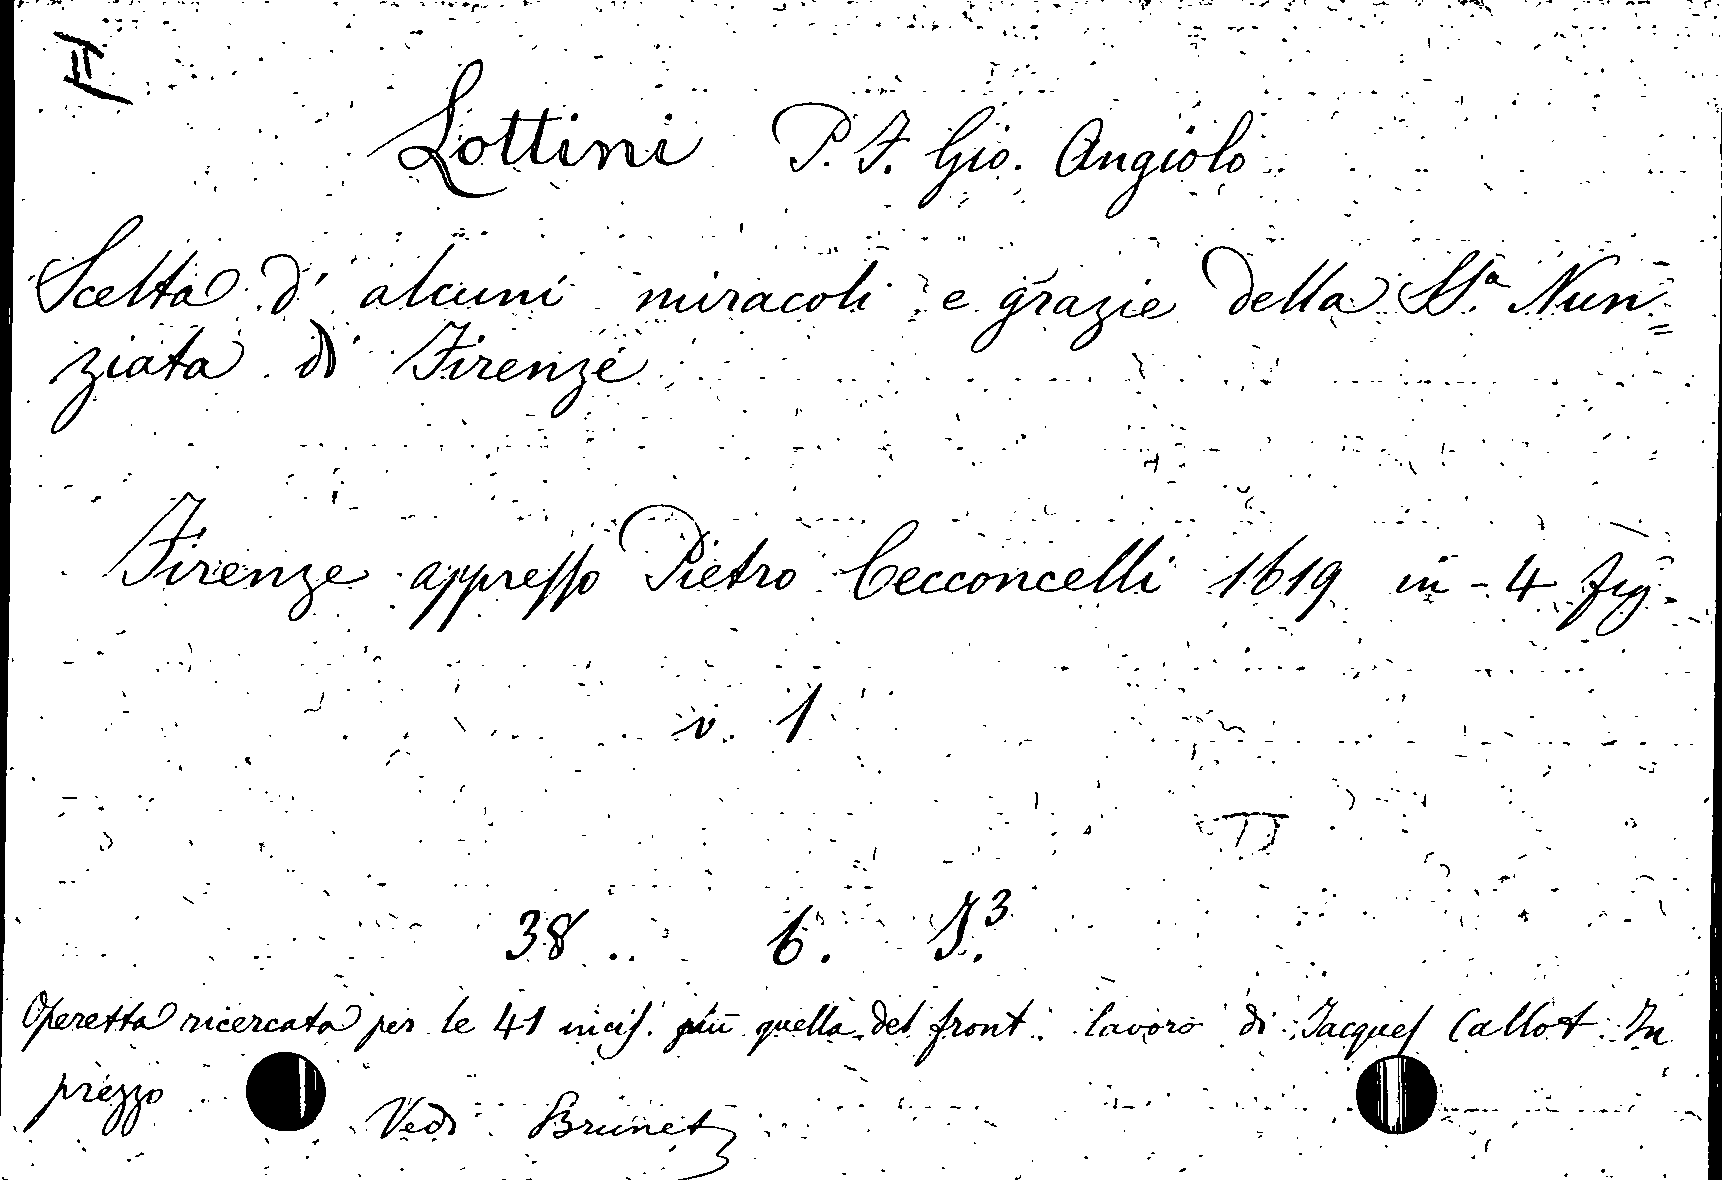 II
Lottini P. F. Gio. Angiolo
Scelta d' alcuni miracoli e grazie della SS.a Nun=
ziata di Firenze
Firenze appresso Pietro Cecconcelli 1619 in-4 fig.
v. 1
38.. 6. J.3
Operetta ricercata per le 41 incis. più quella del front. lavoro di Jacques Callot. In
prezzo
Vedi Brunet